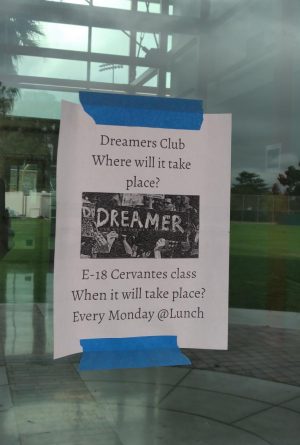 Dreamers Club
Where will it take
place?
DREAMER
E-18 Cervantes class
When it will take place?
Every Monday @Lunch